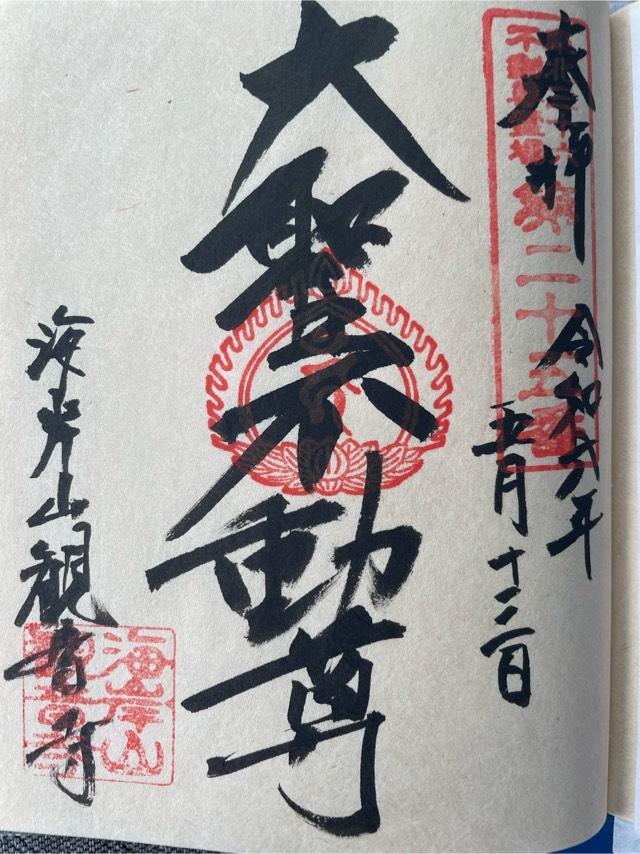 奉拝
令和年
五月十二日
不動尊霊場
第二十五番
大聖不動尊
海岸山観音寺
海岸山
観音寺